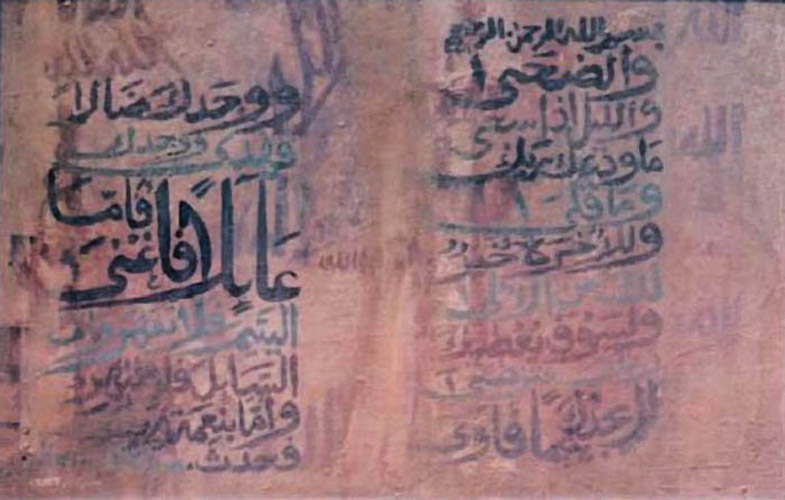 بسم الله الرحمن الرحيم
والضحى
والليل اذا سجى
ما ودعك ربك
وما قلى
وللاخرة خير
لك من الاولى
ولسوف يعطيك
فترضى
الم يجدك يتيما فاوى
ووجدك ضالا
فهدى ووجدك
عايلا فاغنى فاما
اليتيم فلا تقهر واما
السايل فلا تنهر
واما بنعمة ربك
فحدث